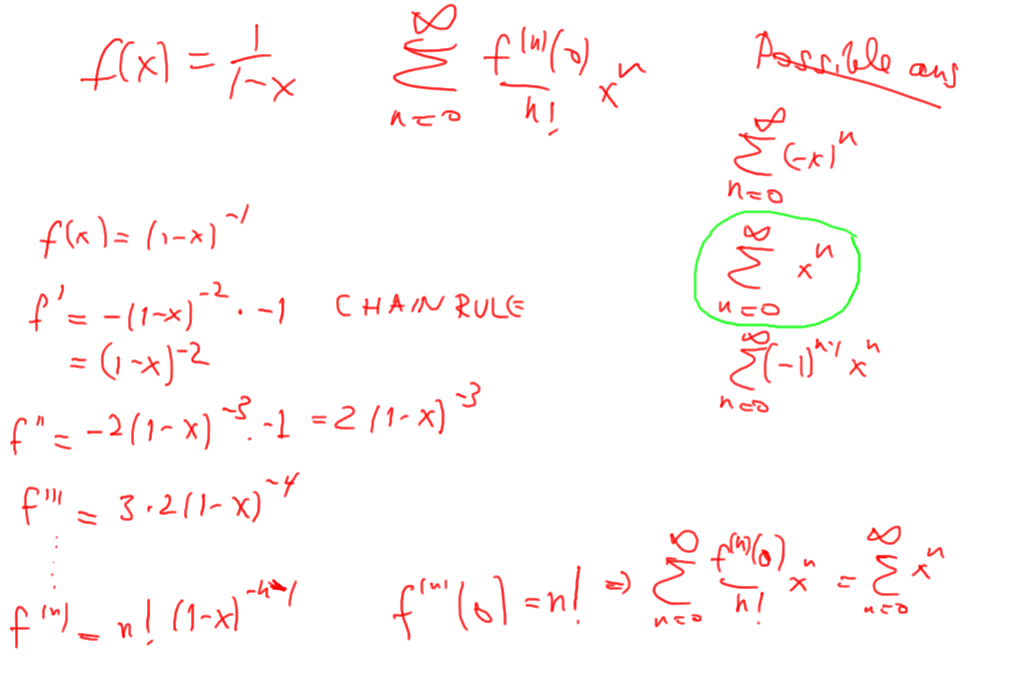 f(x) = 1/(1-x)   ∑_{n=0}^{∞} f^{(n)}(0)/n! x^n   Possible ans
∑_{n=0}^{∞} (-x)^n
f(x) = (1-x)^{-1}
∑_{n=0}^{∞} x^n
f' = -(1-x)^{-2} · -1   CHAIN RULE
= (1-x)^{-2}
∑_{n=0}^{∞} (-1)^{n-1} x^n
f'' = -2(1-x)^{-3} · -1 = 2(1-x)^{-3}
f''' = 3·2(1-x)^{-4}
f^{(n)} = n! (1-x)^{-n-1}   f^{(n)}(0) = n! ⇒ ∑_{n=0}^{∞} f^{(n)}(0)/n! x^n = ∑_{n=0}^{∞} x^n